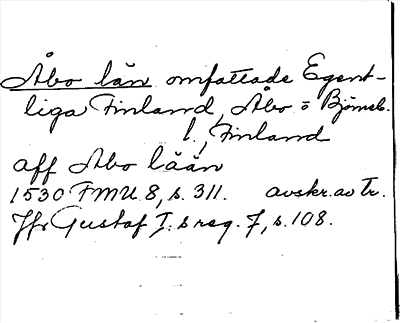 Åbo län omfattade Egent-
liga Finland, Åbo o Björneb.
l., Finland
aff Abo lään
1530 FMU 8, s. 311. avskr. av tr.
Jfr Gustaf I:s reg. 7, s. 108.